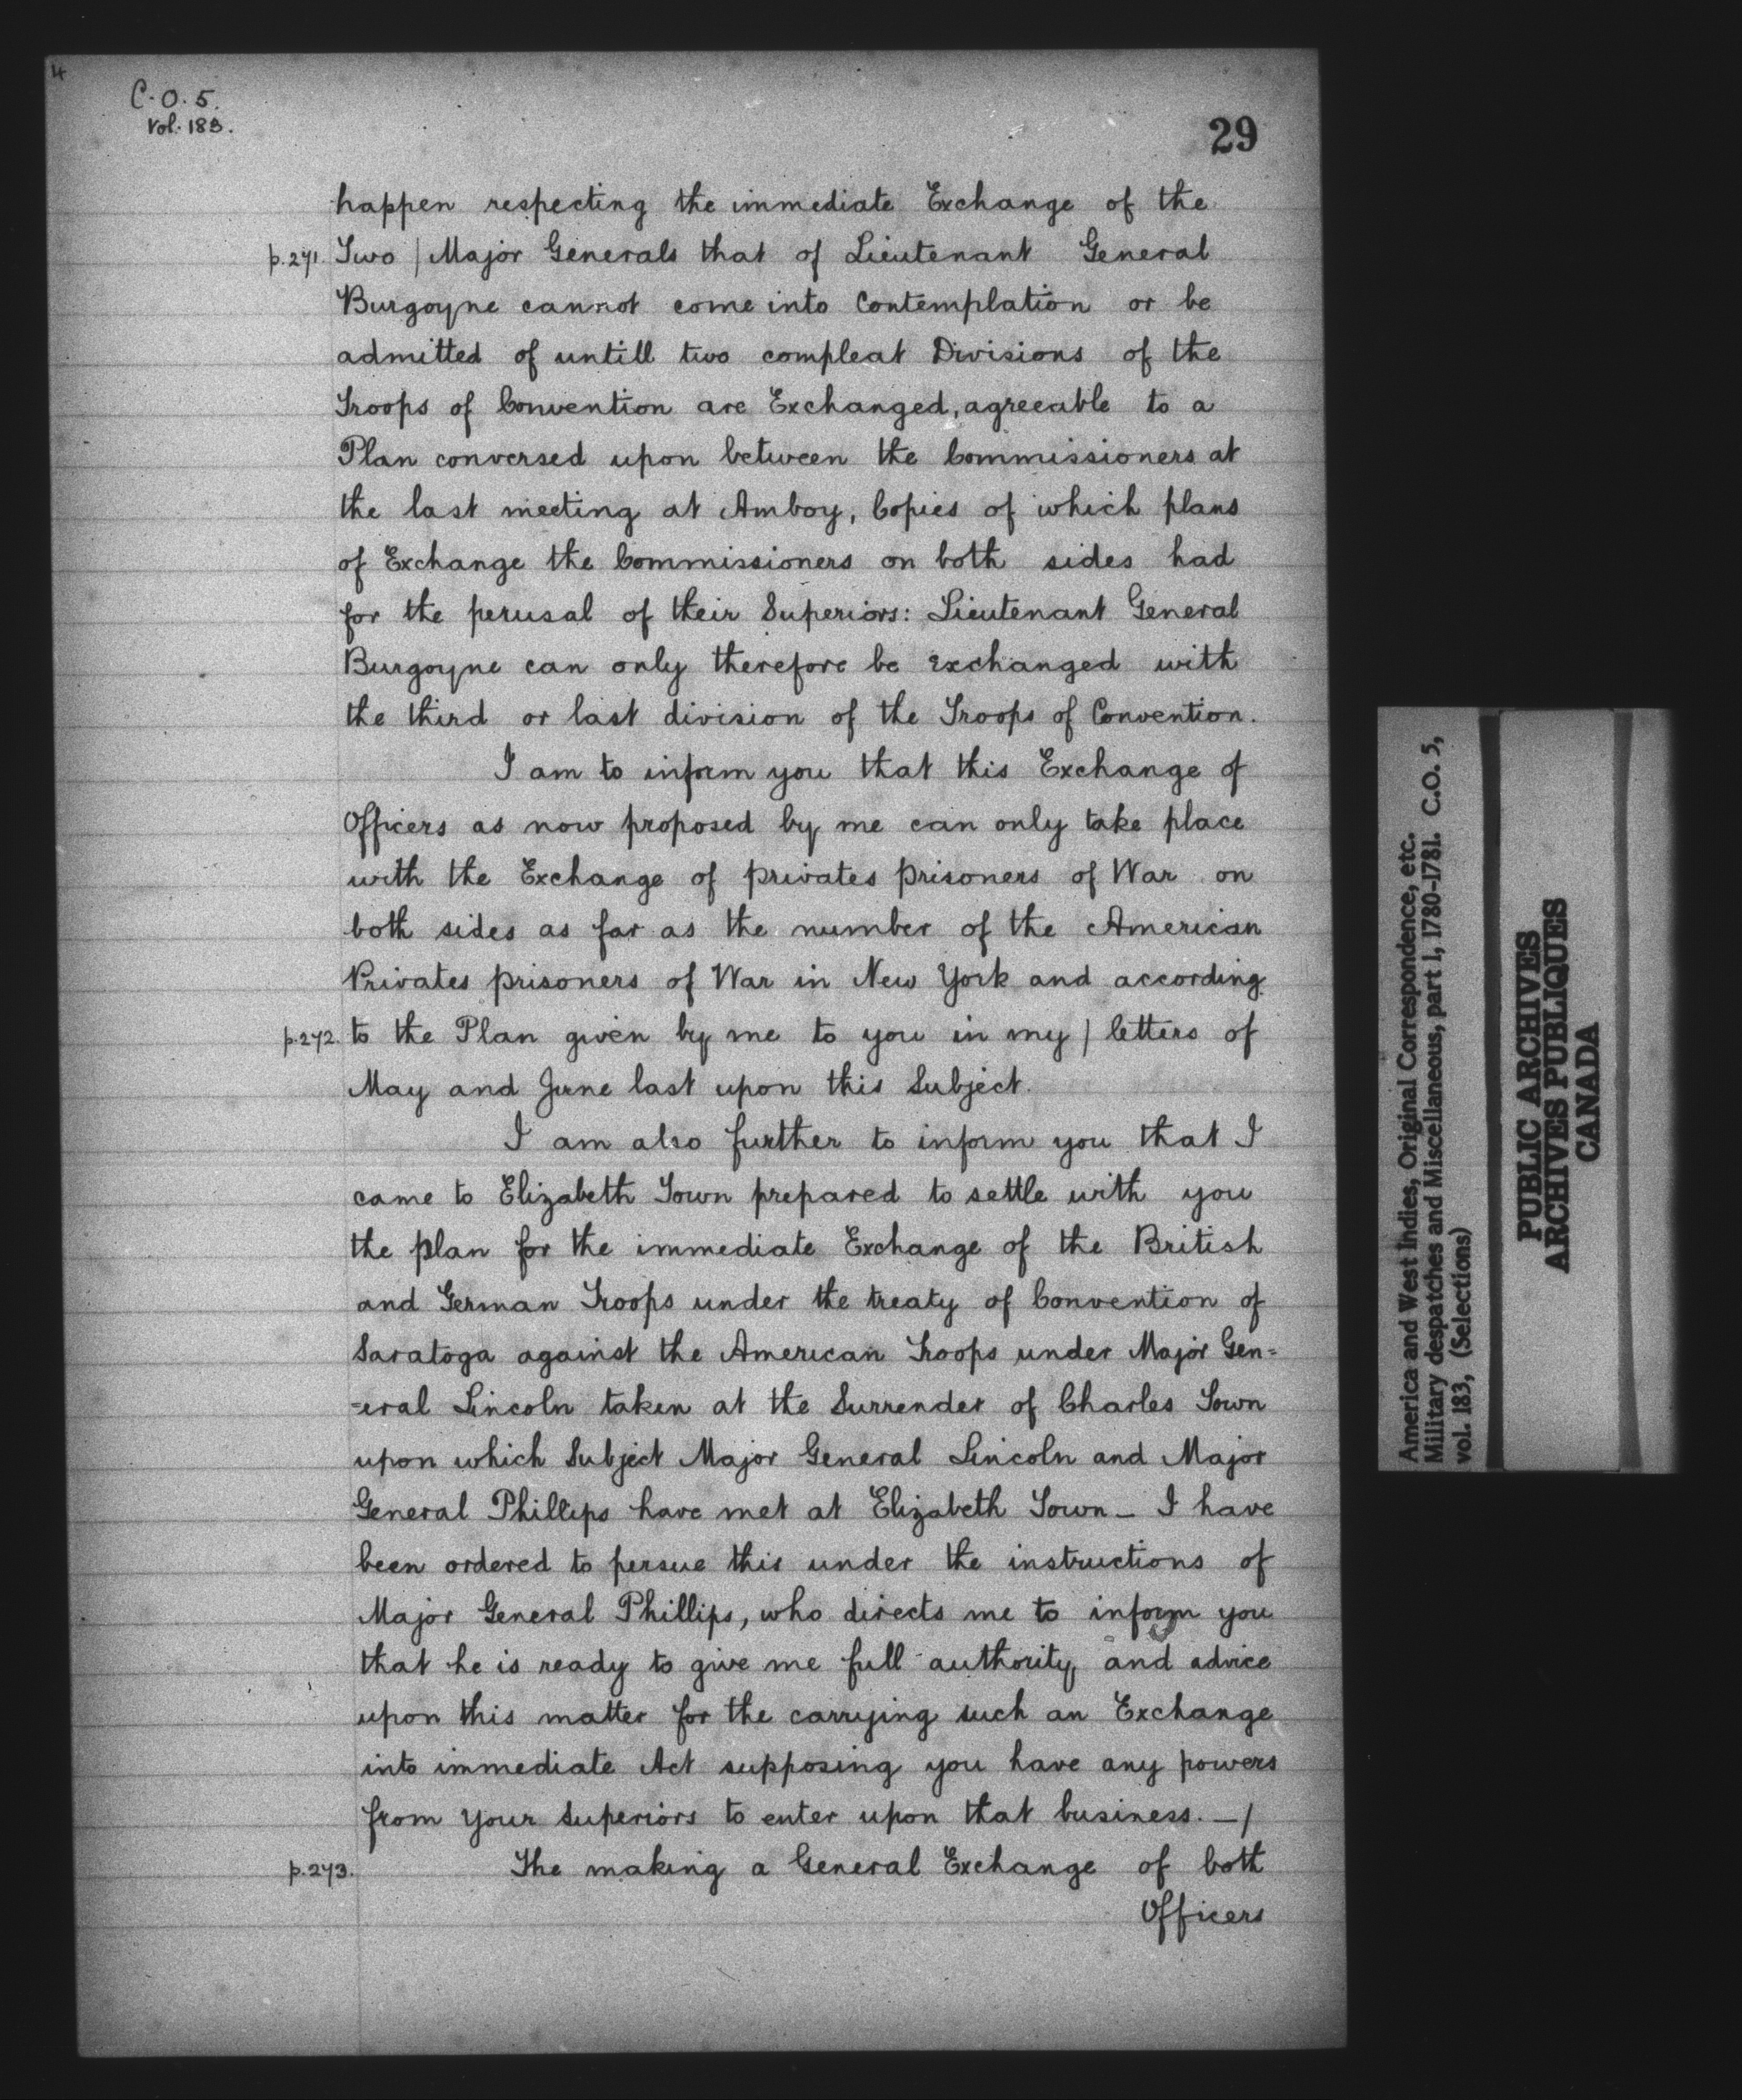 4
C.O. 5.
Vol. 183.
29
happen respecting the immediate Exchange of the
p.271. Two | Major Generals that of Lieutenant General
Burgoyne cannot come into Contemplation or be
admitted of untill two compleat Divisions of the
Troops of Convention are Exchanged, agreeable to a
Plan conversed upon between the Commissioners at
the last meeting at Amboy, Copies of which plans
of Exchange the Commissioners on both sides had
for the perusal of their Superiors: Lieutenant General
Burgoyne can only therefore be exchanged with
the third or last division of the Troops of Convention.
I am to inform you that this Exchange of
Officers as now proposed by me can only take place
with the Exchange of privates prisoners of War on
both sides as far as the number of the American
Privates prisoners of War in New York and according
p.272. to the Plan given by me to you in my | letters of
May and June last upon this Subject.
I am also further to inform you that I
came to Elizabeth Town prepared to settle with you
the plan for the immediate Exchange of the British
and German Troops under the treaty of Convention of
Saratoga against the American Troops under Major Gen=
=eral Lincoln taken at the Surrender of Charles Town
upon which Subject Major General Lincoln and Major
General Phillips have met at Elizabeth Town — I have
been ordered to persue this under the instructions of
Major General Phillips, who directs me to inform you
that he is ready to give me full authority and advice
upon this matter for the carrying such an Exchange
into immediate Act supposing you have any powers
from your Superiors to enter upon that business. — |
p.273. The making a General Exchange of both
Officers
America and West Indies, Original Correspondence, etc.
Military despatches and Miscellaneous, part 1, 1780-1781. C.O. 5,
vol. 183, (Selections)
PUBLIC ARCHIVES
ARCHIVES PUBLIQUES
CANADA